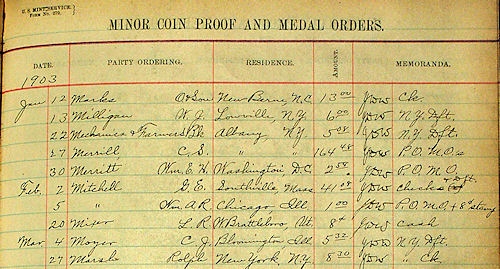 U. S. MINT SERVICE.
Form No. 279.
MINOR COIN PROOF AND MEDAL ORDERS.
DATE. PARTY ORDERING. RESIDENCE. AMOUNT. MEMORANDA.
1903
Jan 12 Marks O & Son New Berne, N.C. 13 00 Ck.
13 Milligan W. J. Lowville, N.Y. 6 00 N.Y. Dft.
22 Mechanics & Farmers Bk Albany N.Y. 5 08 N.Y. Dft.
27 Merrill C. S. " " 164 48 P.O. M.O.s
30 Merritt Wm. E. H. Washington D.C. 2 58 P.O. M.O.
Feb. 2 Mitchell G. E. Southville, Mass 41 08 checks & Dft
5 " Wm. A. R. Chicago, Ill 1 00 P.O. M.O. + 8¢ stamp
20 Mixer L. R. W. Brattleboro, Vt. 84 cash
Mar 4 Moyer C. J. Bloomington, Ill. 5 32 N.Y. Dft.
27 Marsh Ralph New York N.Y. 8 30 " Ck.